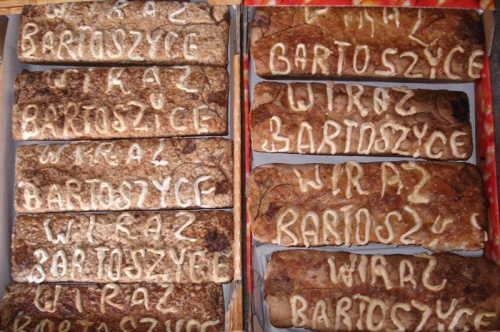 WIRAZ
BARTOSZYCE
WIRAZ
BARTOSZYCE
WIRAZ
BARTOSZYCE
WIRAZ
BARTOSZYCE
WIRAZ
BARTOSZYCE
WIRAZ
BARTOSZYCE
WIRAZ
BARTOSZYCE
WIRAZ
WIRAZ
BARTOSZYCE